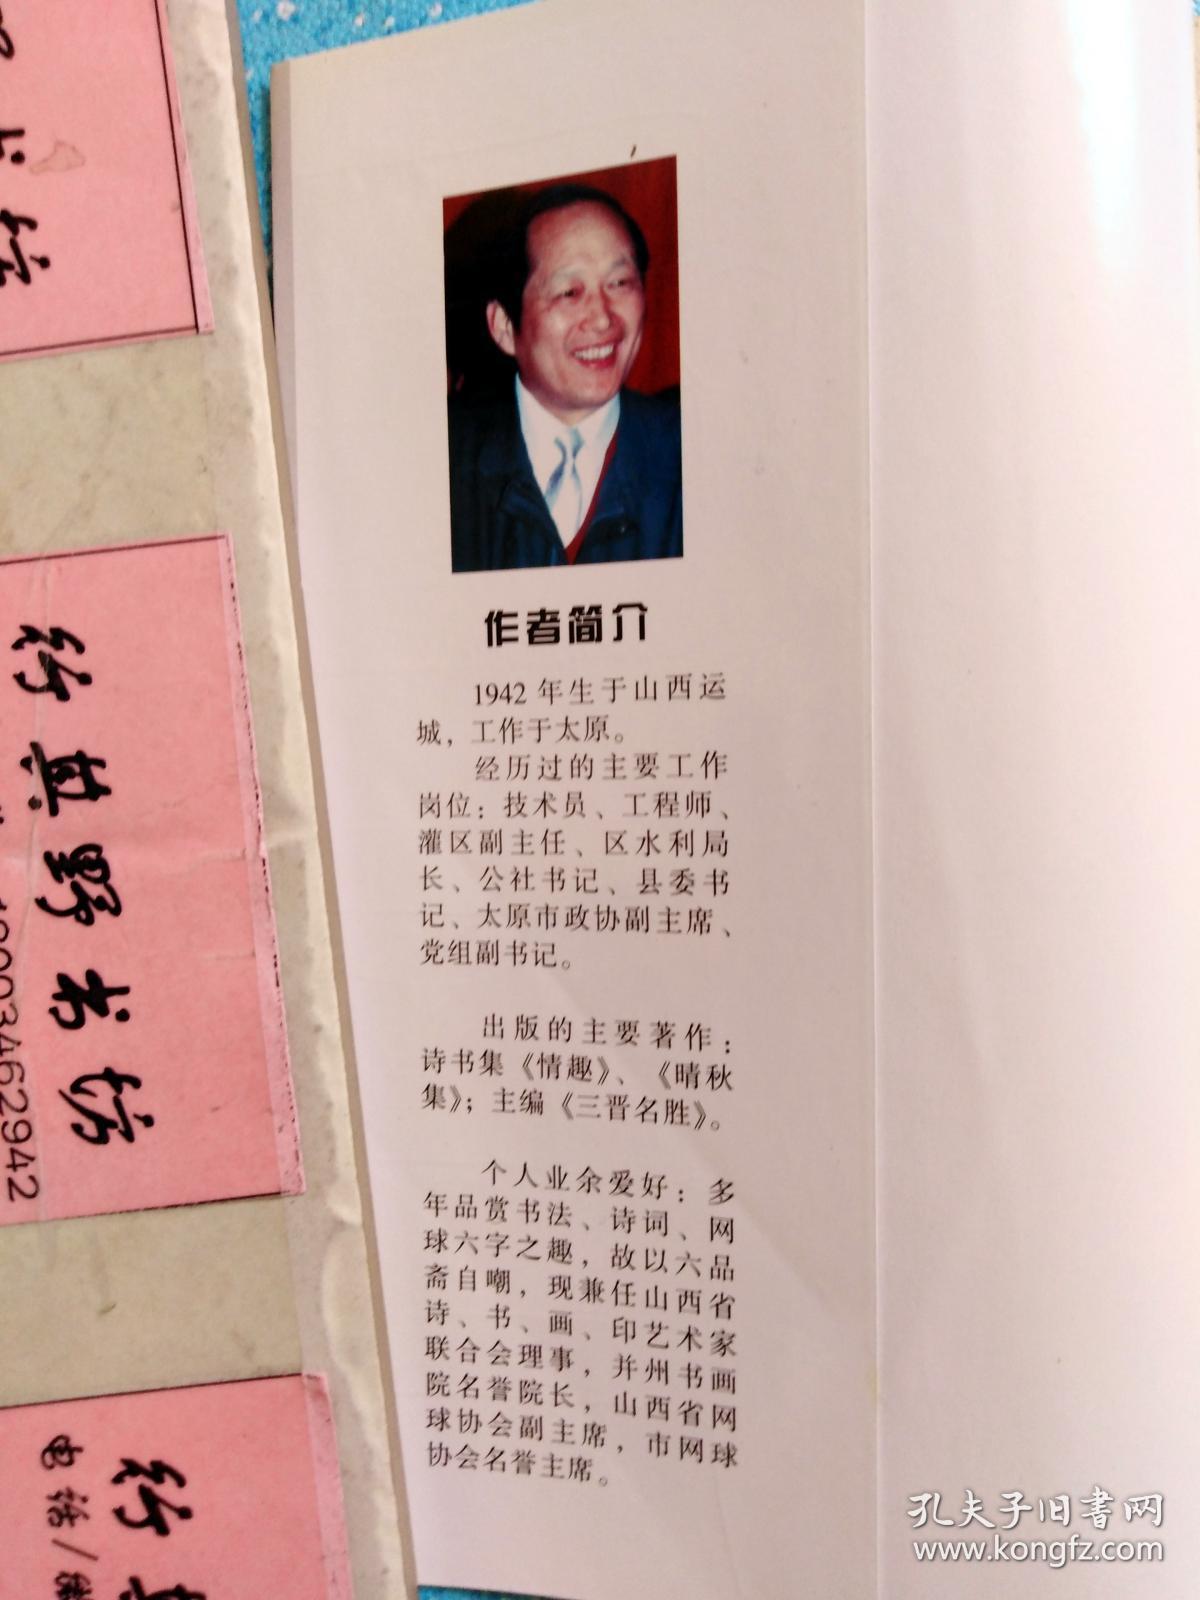 作者简介
1942 年生于山西运
城，工作于太原。
经历过的主要工作
岗位：技术员、工程师、
灌区副主任、区水利局
长、公社书记、县委书
记、太原市政协副主席、
党组副书记。
出版的主要著作：
诗书集《情趣》、《晴秋
集》；主编《三晋名胜》。
个人业余爱好：多
年品赏书法、诗词、网
球六字之趣，故以六品
斋自嘲，现兼任山西省
诗、书、画、印艺术家
联合会理事，并州书画
院名誉院长，山西省网
球协会副主席，市网球
协会名誉主席。
野书坊
3462942
电话/
孔夫子旧书网
www.kongfz.com